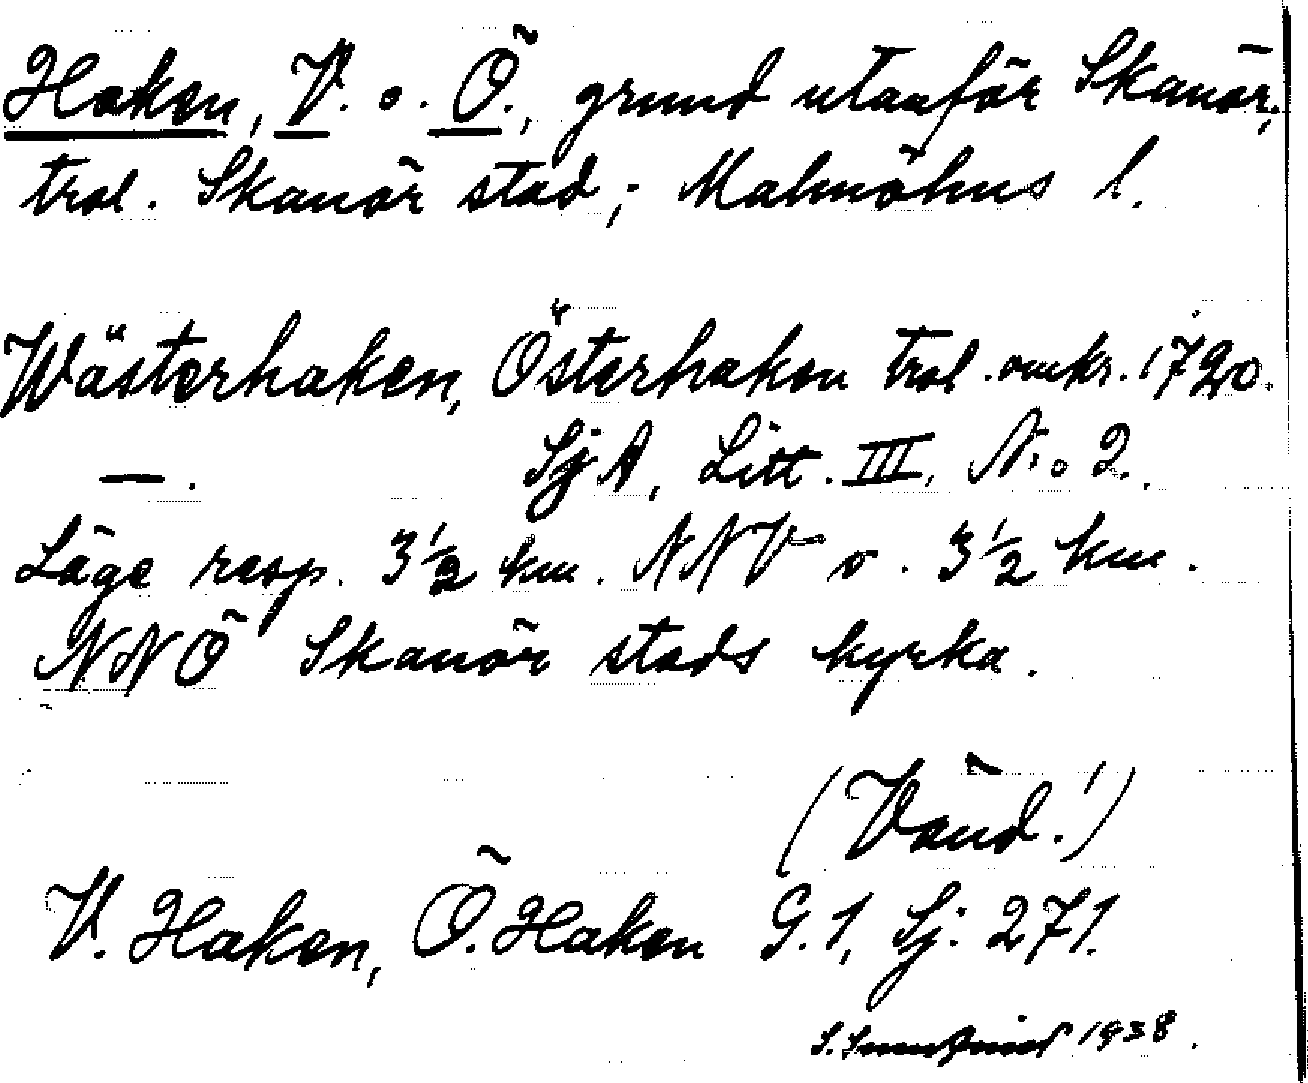 Haken, V. o. Ö., grund utanför Skanör,
trol. Skanör stad; Malmöhus l.
Wästerhaken, Österhaken trol. omkr. 1720.
— . SjA, Litt. III, N:o 2.
Läge resp. 3 1/2 km. NNV o. 3 1/2 km.
NNÖ Skanör stads kyrka.
(Vänd!)
V. Haken, Ö. Haken G.1, Sj. 271.
1938.